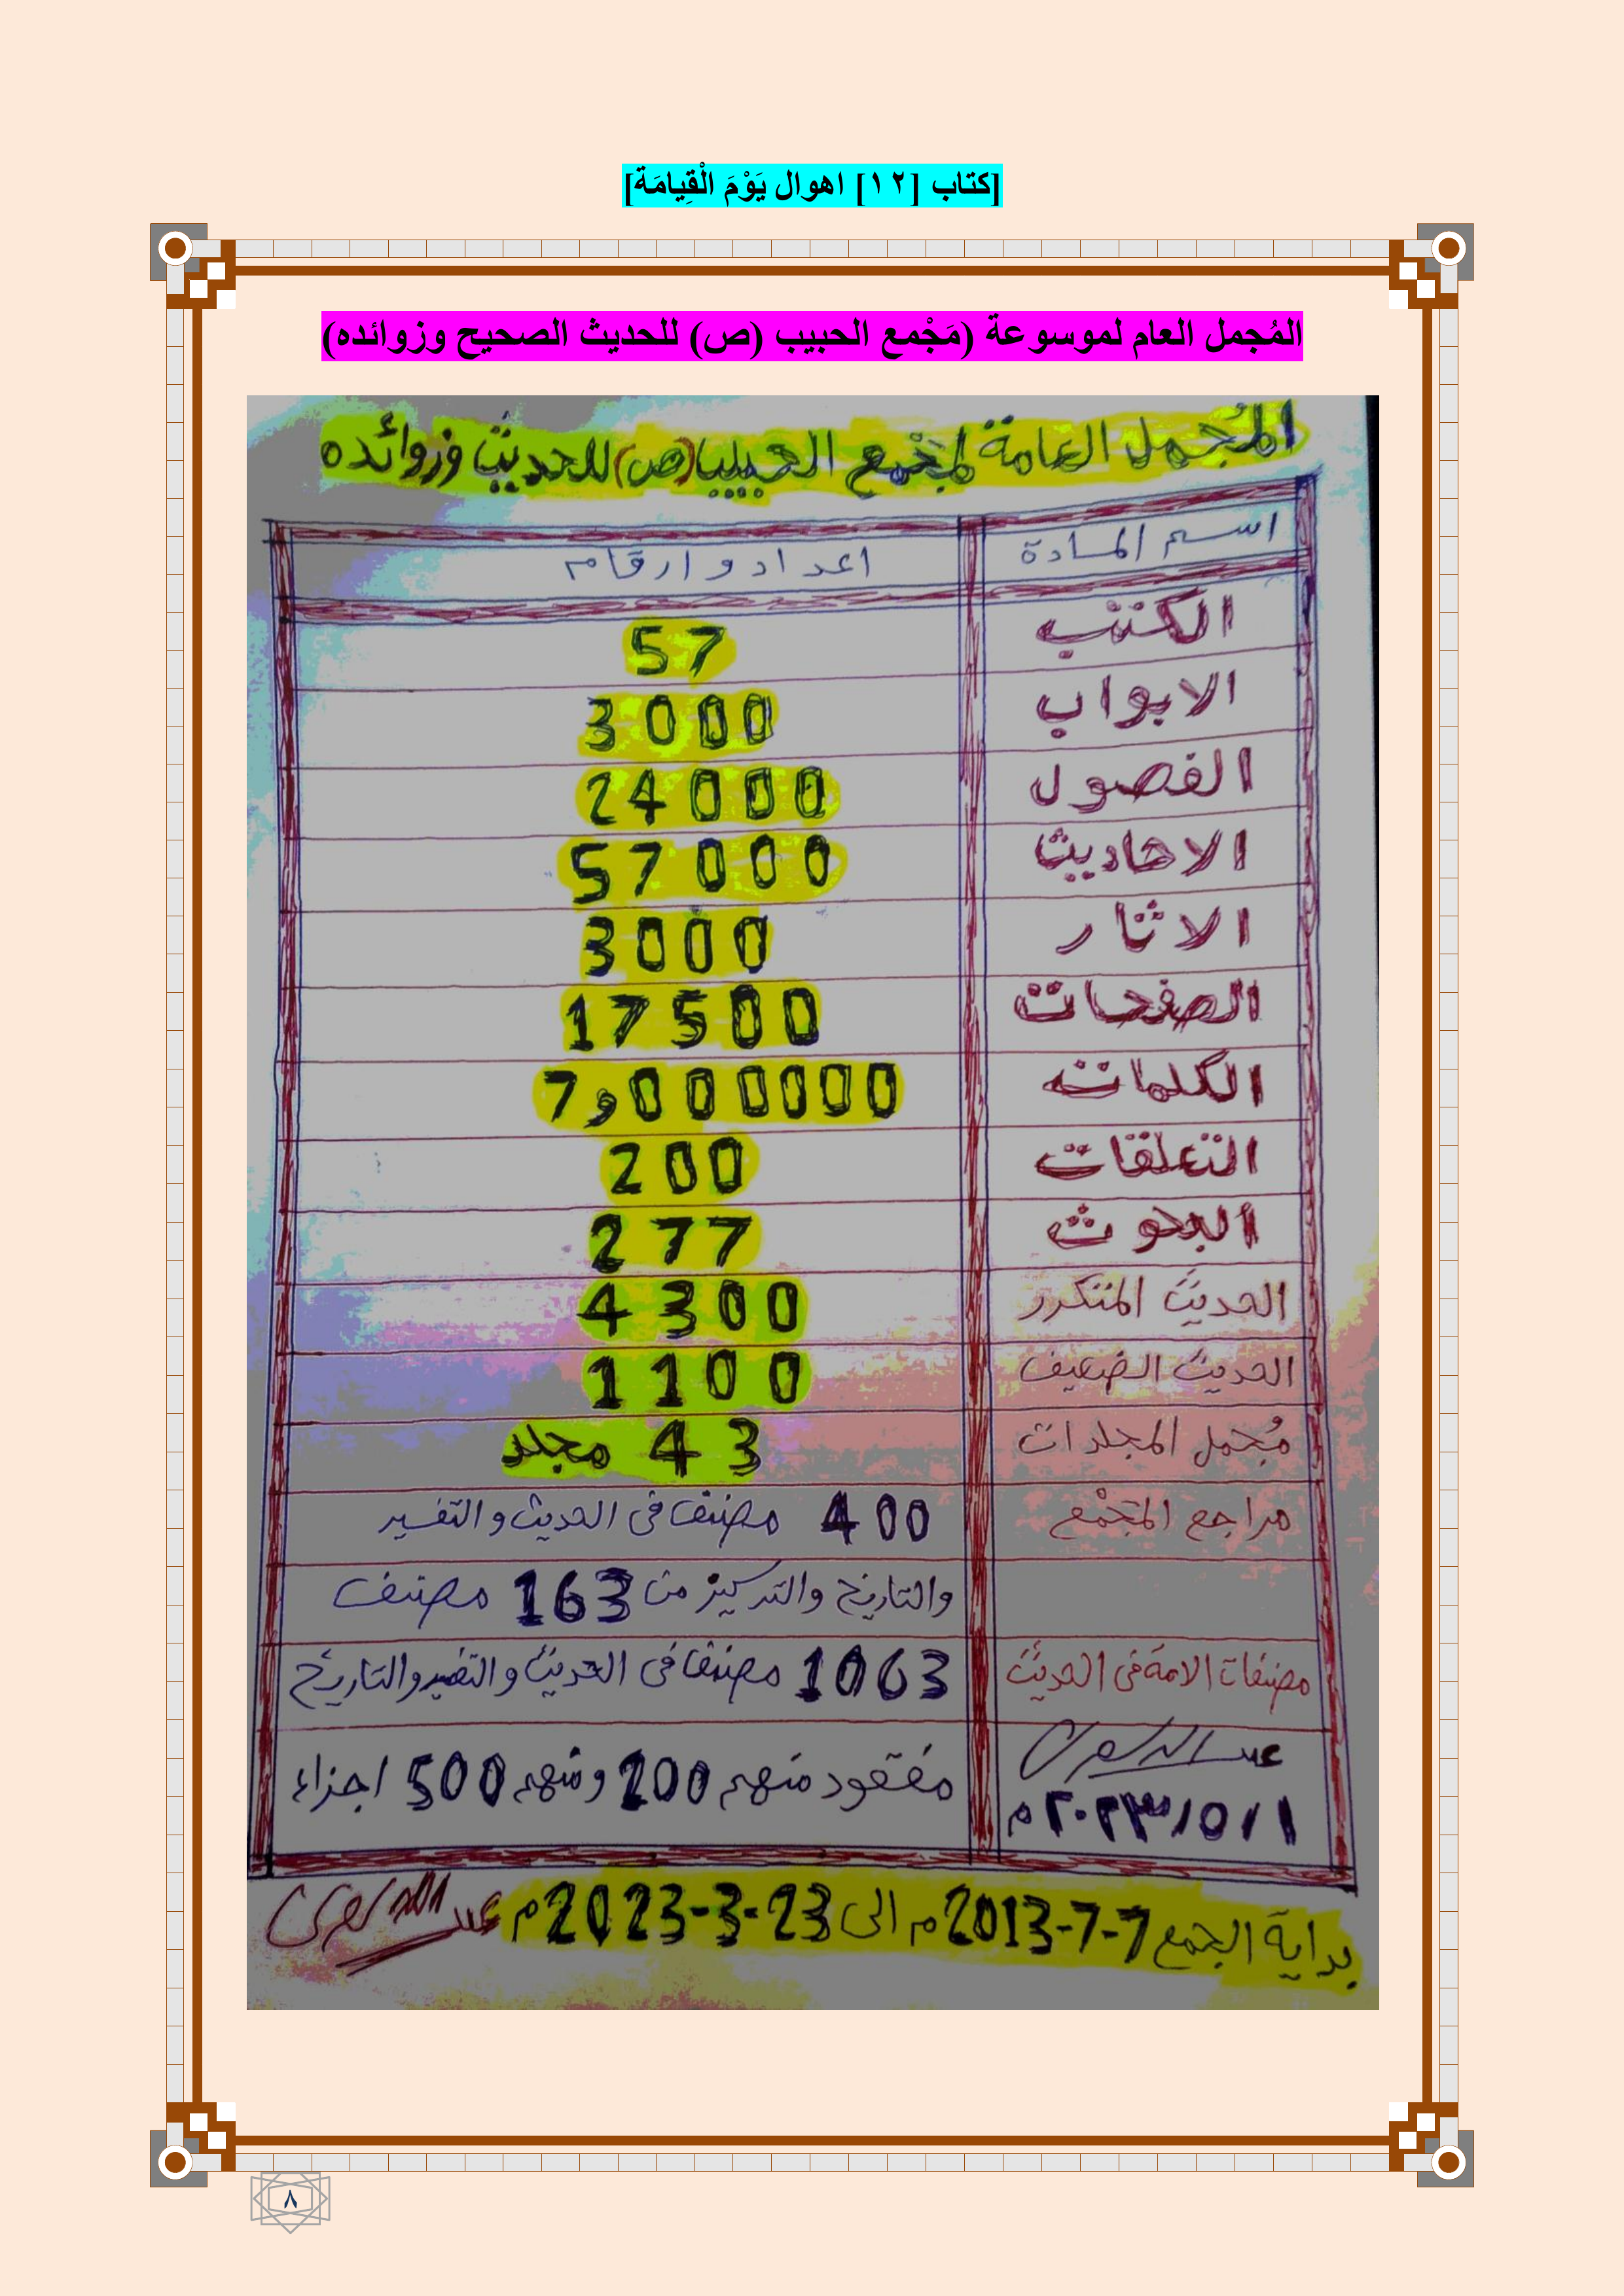 [كتاب [١٢] اهوال يَوْمَ الْقِيامَة]
المُجمل العام لموسوعة (مَجْمع الحبيب (ص) للحديث الصحيح وزوائده)
المُجمل العامة لمَجْمع الحبيب (ص) للحديث وزوائده
اسم المادة اعداد و ارقام
الكتب 57
الابواب 3000
الفصول 24000
الاحاديث 57000
الاثار 3000
الصفحات 17500
الكلمات 7,000000
التعلقات 200
البحوث 277
الحديث المتكرر 4300
الحديث الضعيف 1100
مُجمل المجلدات 43 مجلد
مراجع المَجْمع 400 مصنف فى الحديث والتفسير
والتاريخ من 163 مصنف
مصنفات الامة فى الحديث 1063 مصنفا فى الحديث والتفسير والتاريخ
مفقود منهم 200 ومنهم 500 اجزاء
٢٠٢٣/٥/١م
بداية الجمع 7-7-2013م الى 23-3-2023م
٨